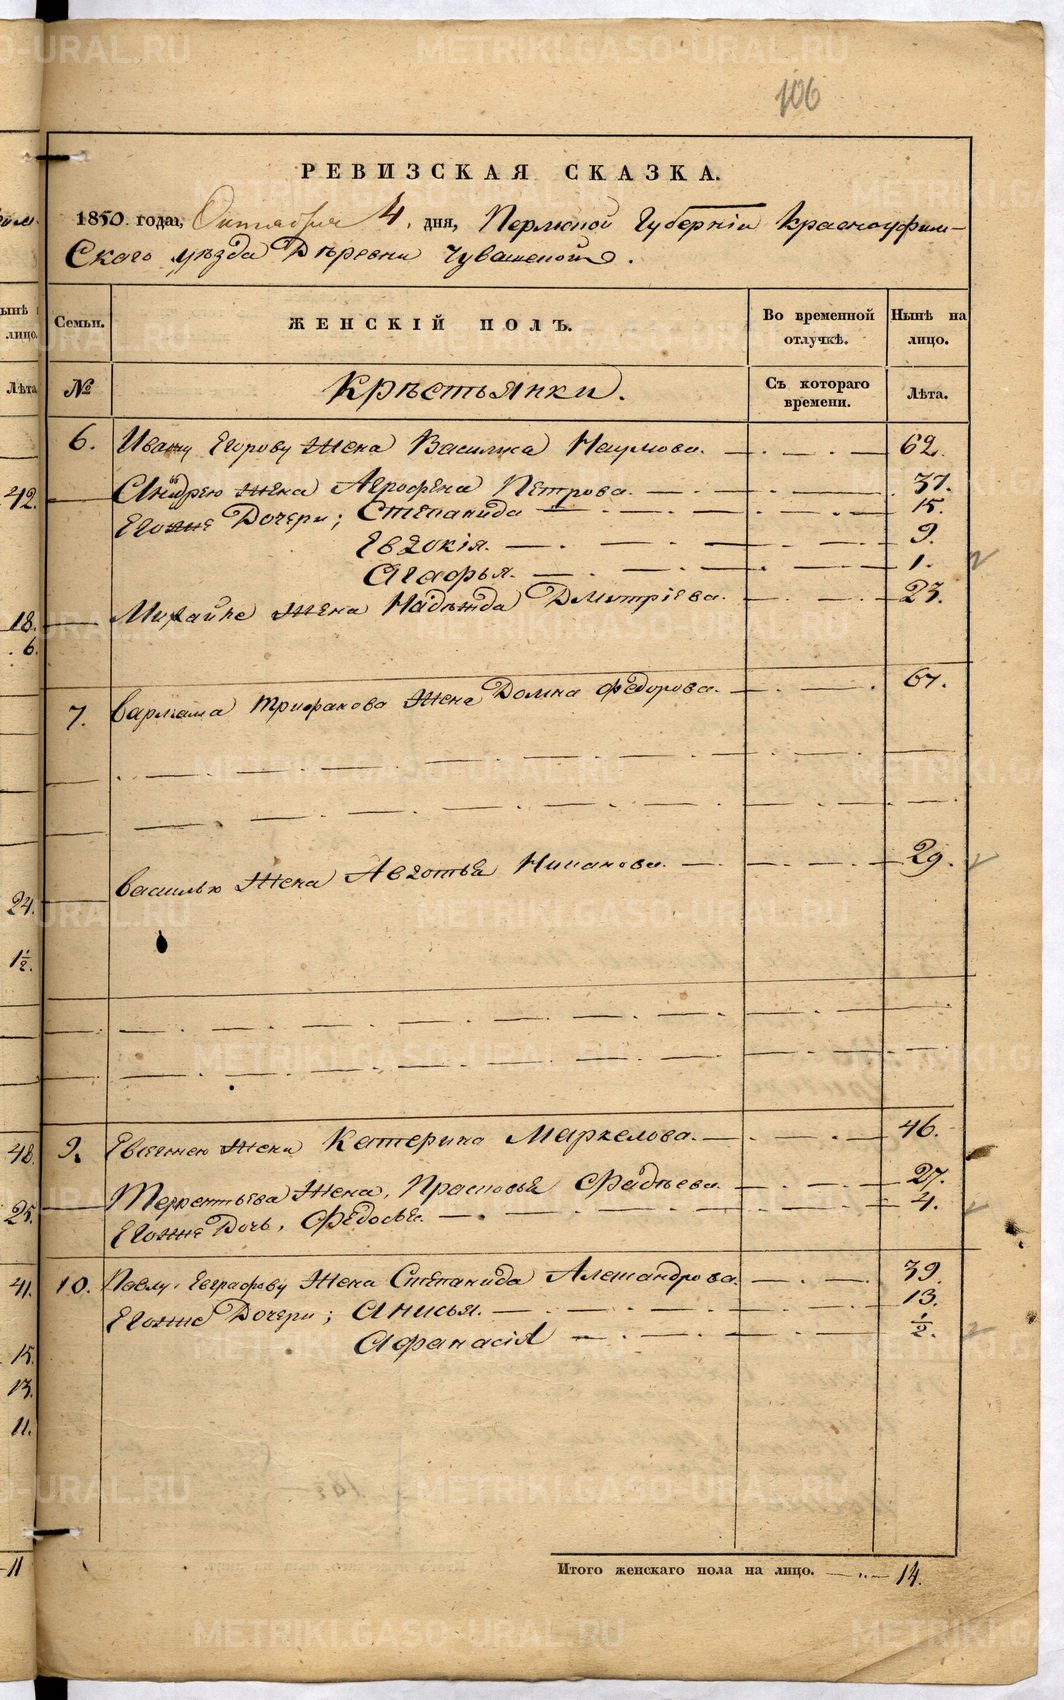 106
РЕВИЗСКАЯ СКАЗКА.
1850. года, Октября 4. дня, Пермской Губерніи Красноуфим-
Скаго уѣзда Дѣревни Чувашской.
Семьи. ЖЕНСКІЙ ПОЛЪ. Во временной отлучкѣ. Нынѣ на лицо.
№ Крѣстьянки. Съ котораго времени. Лѣта.
6. Ивану Егорову Жена Василиса Наумова. 62.
Андрею жена Агрофена Петрова. 37.
Егоже Дочери; Степанида 15.
Евдокія. 9.
Агафья. 1.
Михайле Жена Надѣжда Дмитріева. 23.
7. Варлама Трифанова Жена Домна Федорова. 67.
Василью Жена Авдотья 29.
9. Евгенею Жена Катерина Маркелова. 46.
Терентьева Жена, Прасковья Фадѣева. 27.
Егоже Дочь, Федосья. 4.
10. Павлу Евграфову Жена Степанида Александрова. 39.
Егоже Дочери; Анисья. 13.
Афанасія 1/2.
Итого женскаго пола на лицо. 14.
12.
18.
6.
24.
1 1/2.
48.
25.
41.
15.
13.
11.
11
METRIKI.GASO-URAL.RU